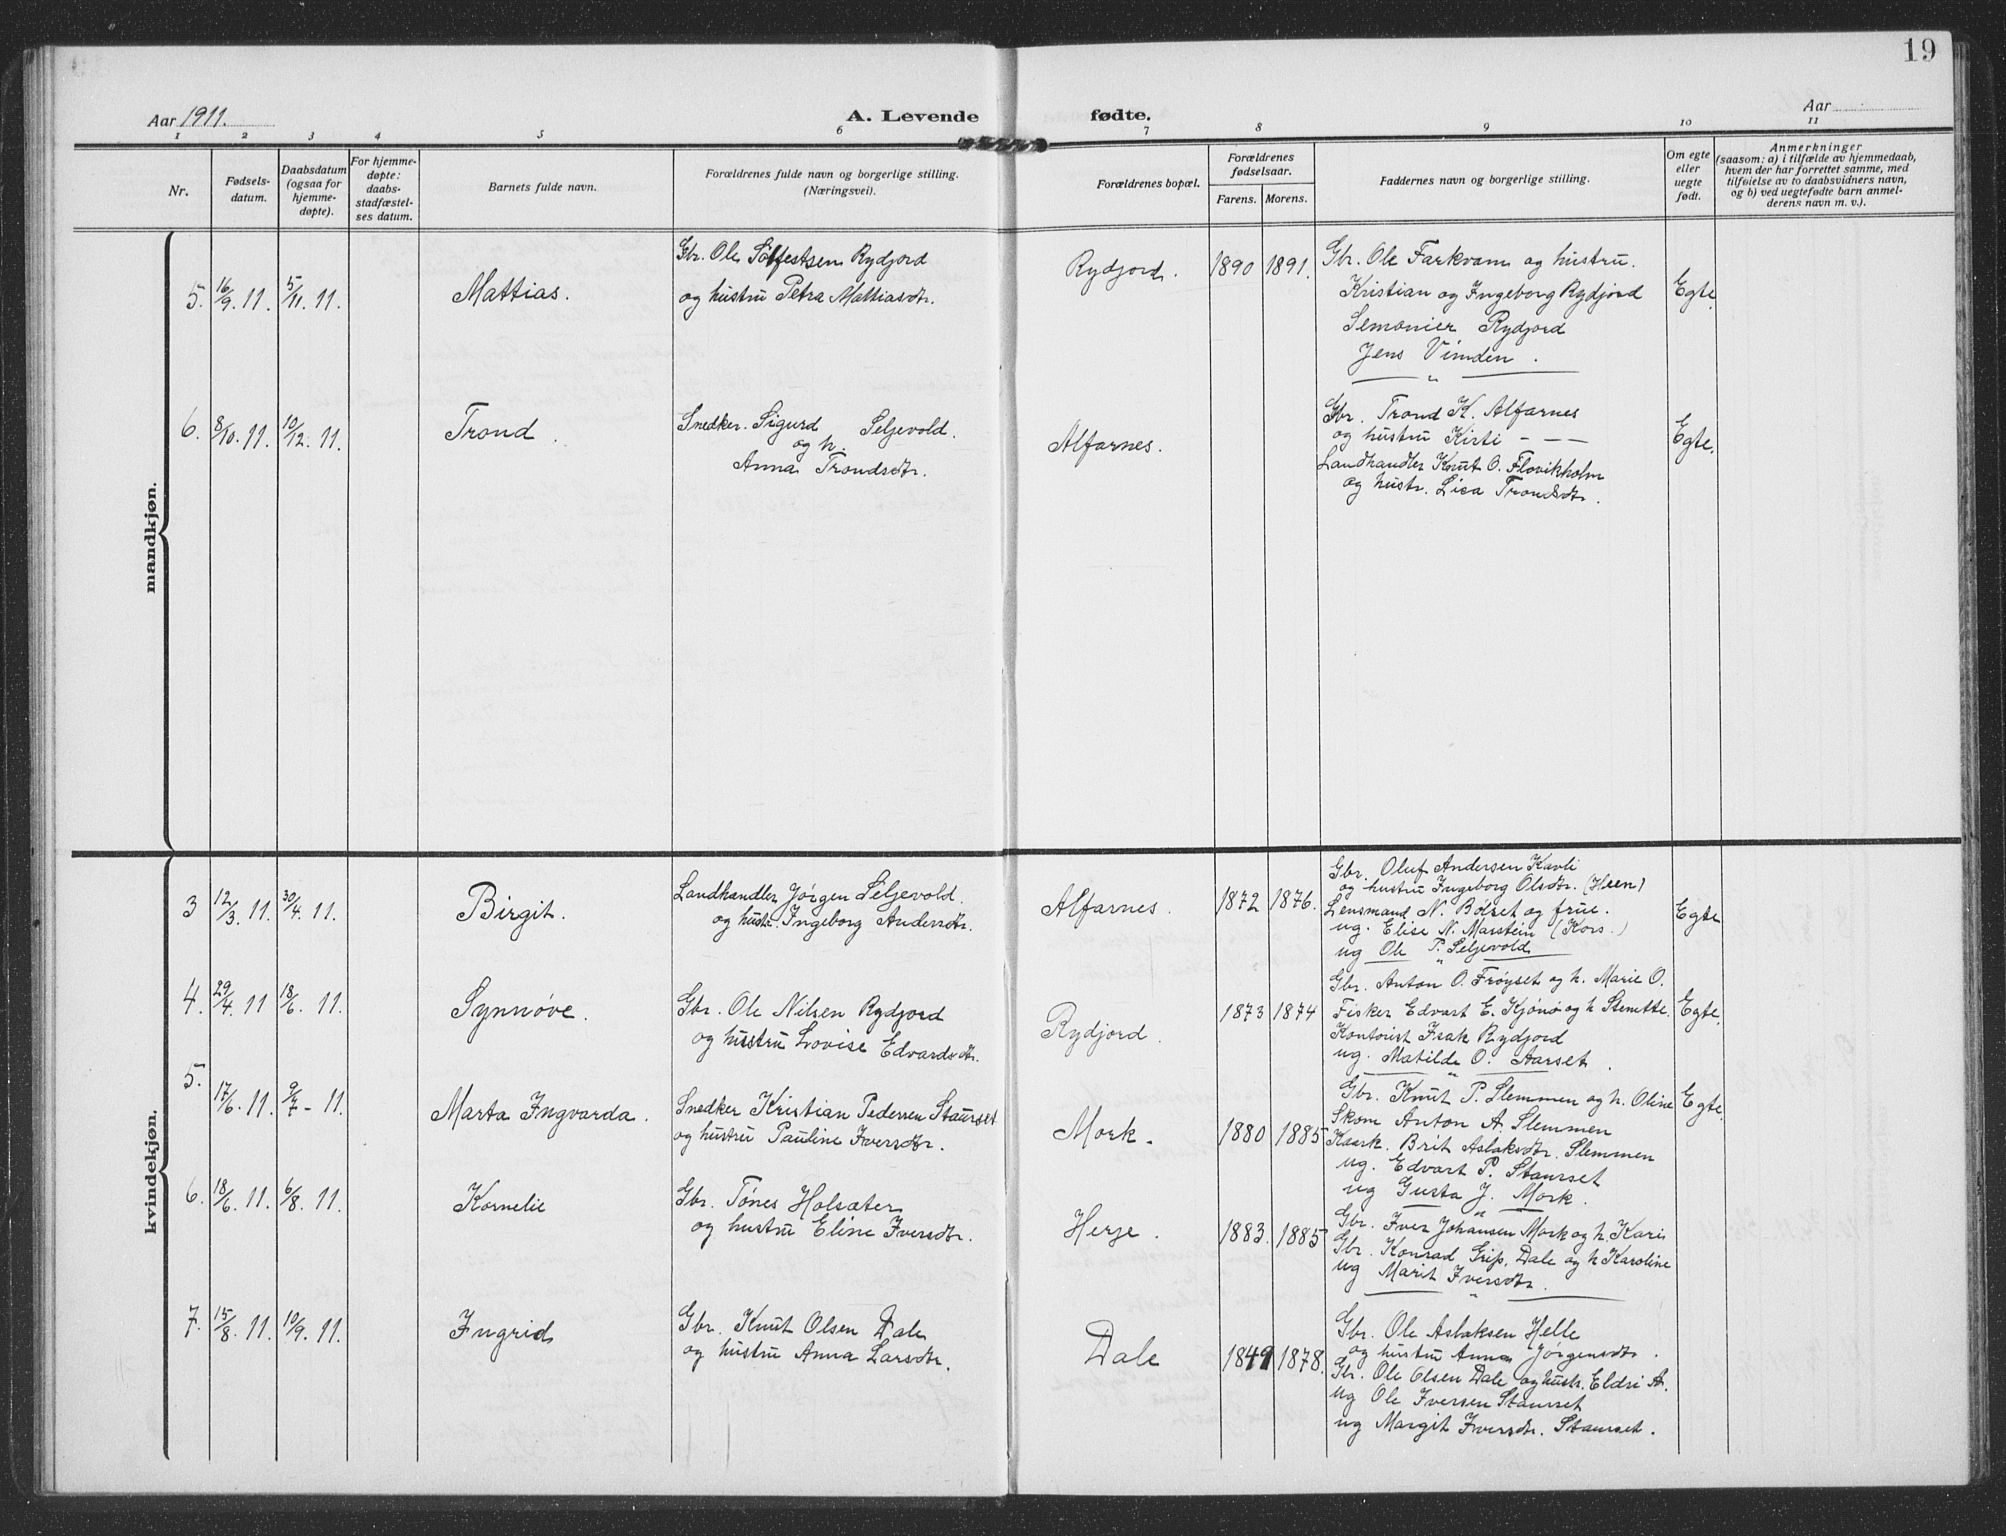 19
Aar 1911.
A. Levende fødte.
Aar
1 2 3 4 5 6 7 8 9 10 11
Nr.
Fødsels-
datum.
Daabsdatum
(ogsaa for
hjemme-
døpte).
For hjemme-
døpte:
daabs-
stadfæstel-
ses datum.
Barnets fulde navn.
Forældrenes fulde navn og borgerlige stilling.
(Næringsvei).
Forældrenes bopæl.
Forældrenes
fødselsaar.
Farens. Morens.
Faddernes navn og borgerlige stilling.
Om egte
eller
uegte
født.
Anmerkninger
(saasom: a) i tilfælde av hjemmedaab,
hvem der har forrettet samme, med
tilføielse av to daabsvidners navn,
og b) ved uegtefødte barn anmel-
derens navn m. v.).
mandkjøn.
5. 16/9. 11. 5/11. 11. Mattias.
Gbr. Ole Sølfestsen Rydjord
og hustru Petra Mattiasdtr.
Rydjord. 1890 1891.
Gbr. Ole Farkvam og hustru.
Kristian og Ingeborg Rydjord
Semonier Rydjord
Jens Vinden.
Egte.
6. 8/10. 11. 10/12. 11. Trond.
Snedker. Sigurd Seljevold.
og h.
Anna Trondsdtr.
Alfarnes.
Gbr. Trond K. Alfarnes
og hustru Kirti - - -
Landhandler Knut O. Flovikholm
og hustr. Lisa Trondsdtr.
Egte.
kvindekjøn.
3 12/3. 11. 30/4. 11. Birgit.
Landhandler Jörgen Seljevold.
og hustr. Ingeborg Andersdtr.
Alfarnes. 1872 1876.
Gbr. Oluf Andersen Kavli
og hustru Ingeborg Olsdtr. (Heen)
Lensmand N. Bölset og frue.
ug. Elise N. Marstein (Kors.)
ug Ole P. Seljevold
Egte
4. 29/4. 11 18/6. 11. Synnøve.
Gbr. Ole Nilsen Rydjord
og hustru Lovise Edvardsdtr.
Rydjord. 1873 1874
Gbr. Anton O. Fröyset og h. Marie O.
Fisker Edvart E. Kjönö og h
Kontorist Isak Rydjord
ug. Matilde O. Aarset.
Egte.
5. 17/6. 11. 9/7 - 11. Marta Ingvarda.
Snedker Kristian Pedersen Staurset
og hustru Pauline Iversdtr.
Mork. 1880 1885
Gbr. Knut P. Slemmen og h. Oline
Skom Anton A. Slemmen
Kaark. Brit Aslaksdtr. Slemmen
ug. Edvart P. Staurset
ug Gusta J. Mork.
Egte.
6. 18/6. 11. 6/8. 11. Kornelie
Gbr. Tönes Holsæter
og hustru Eline Iversdtr.
Herje. 1883. 1885
Gbr. Iver Johansen Mork og h. Kari
Gbr. Konrad Grip, Dale og h Karoline
ug Marit Iversdtr.
7. 15/8. 11. 10/9. 11. Ingrid
Gbr. Knut Olsen Dale
og hustru Anna Larsdtr.
Dale 1849 1878.
Gbr. Ole Aslaksen Helle
og hustru Anna Jörgensdtr.
Gbr. Ole Olsen Dale og hustr. Eldri A.
ug Ole Iversen Staurset
ug Margit Iversdtr. Staurset.